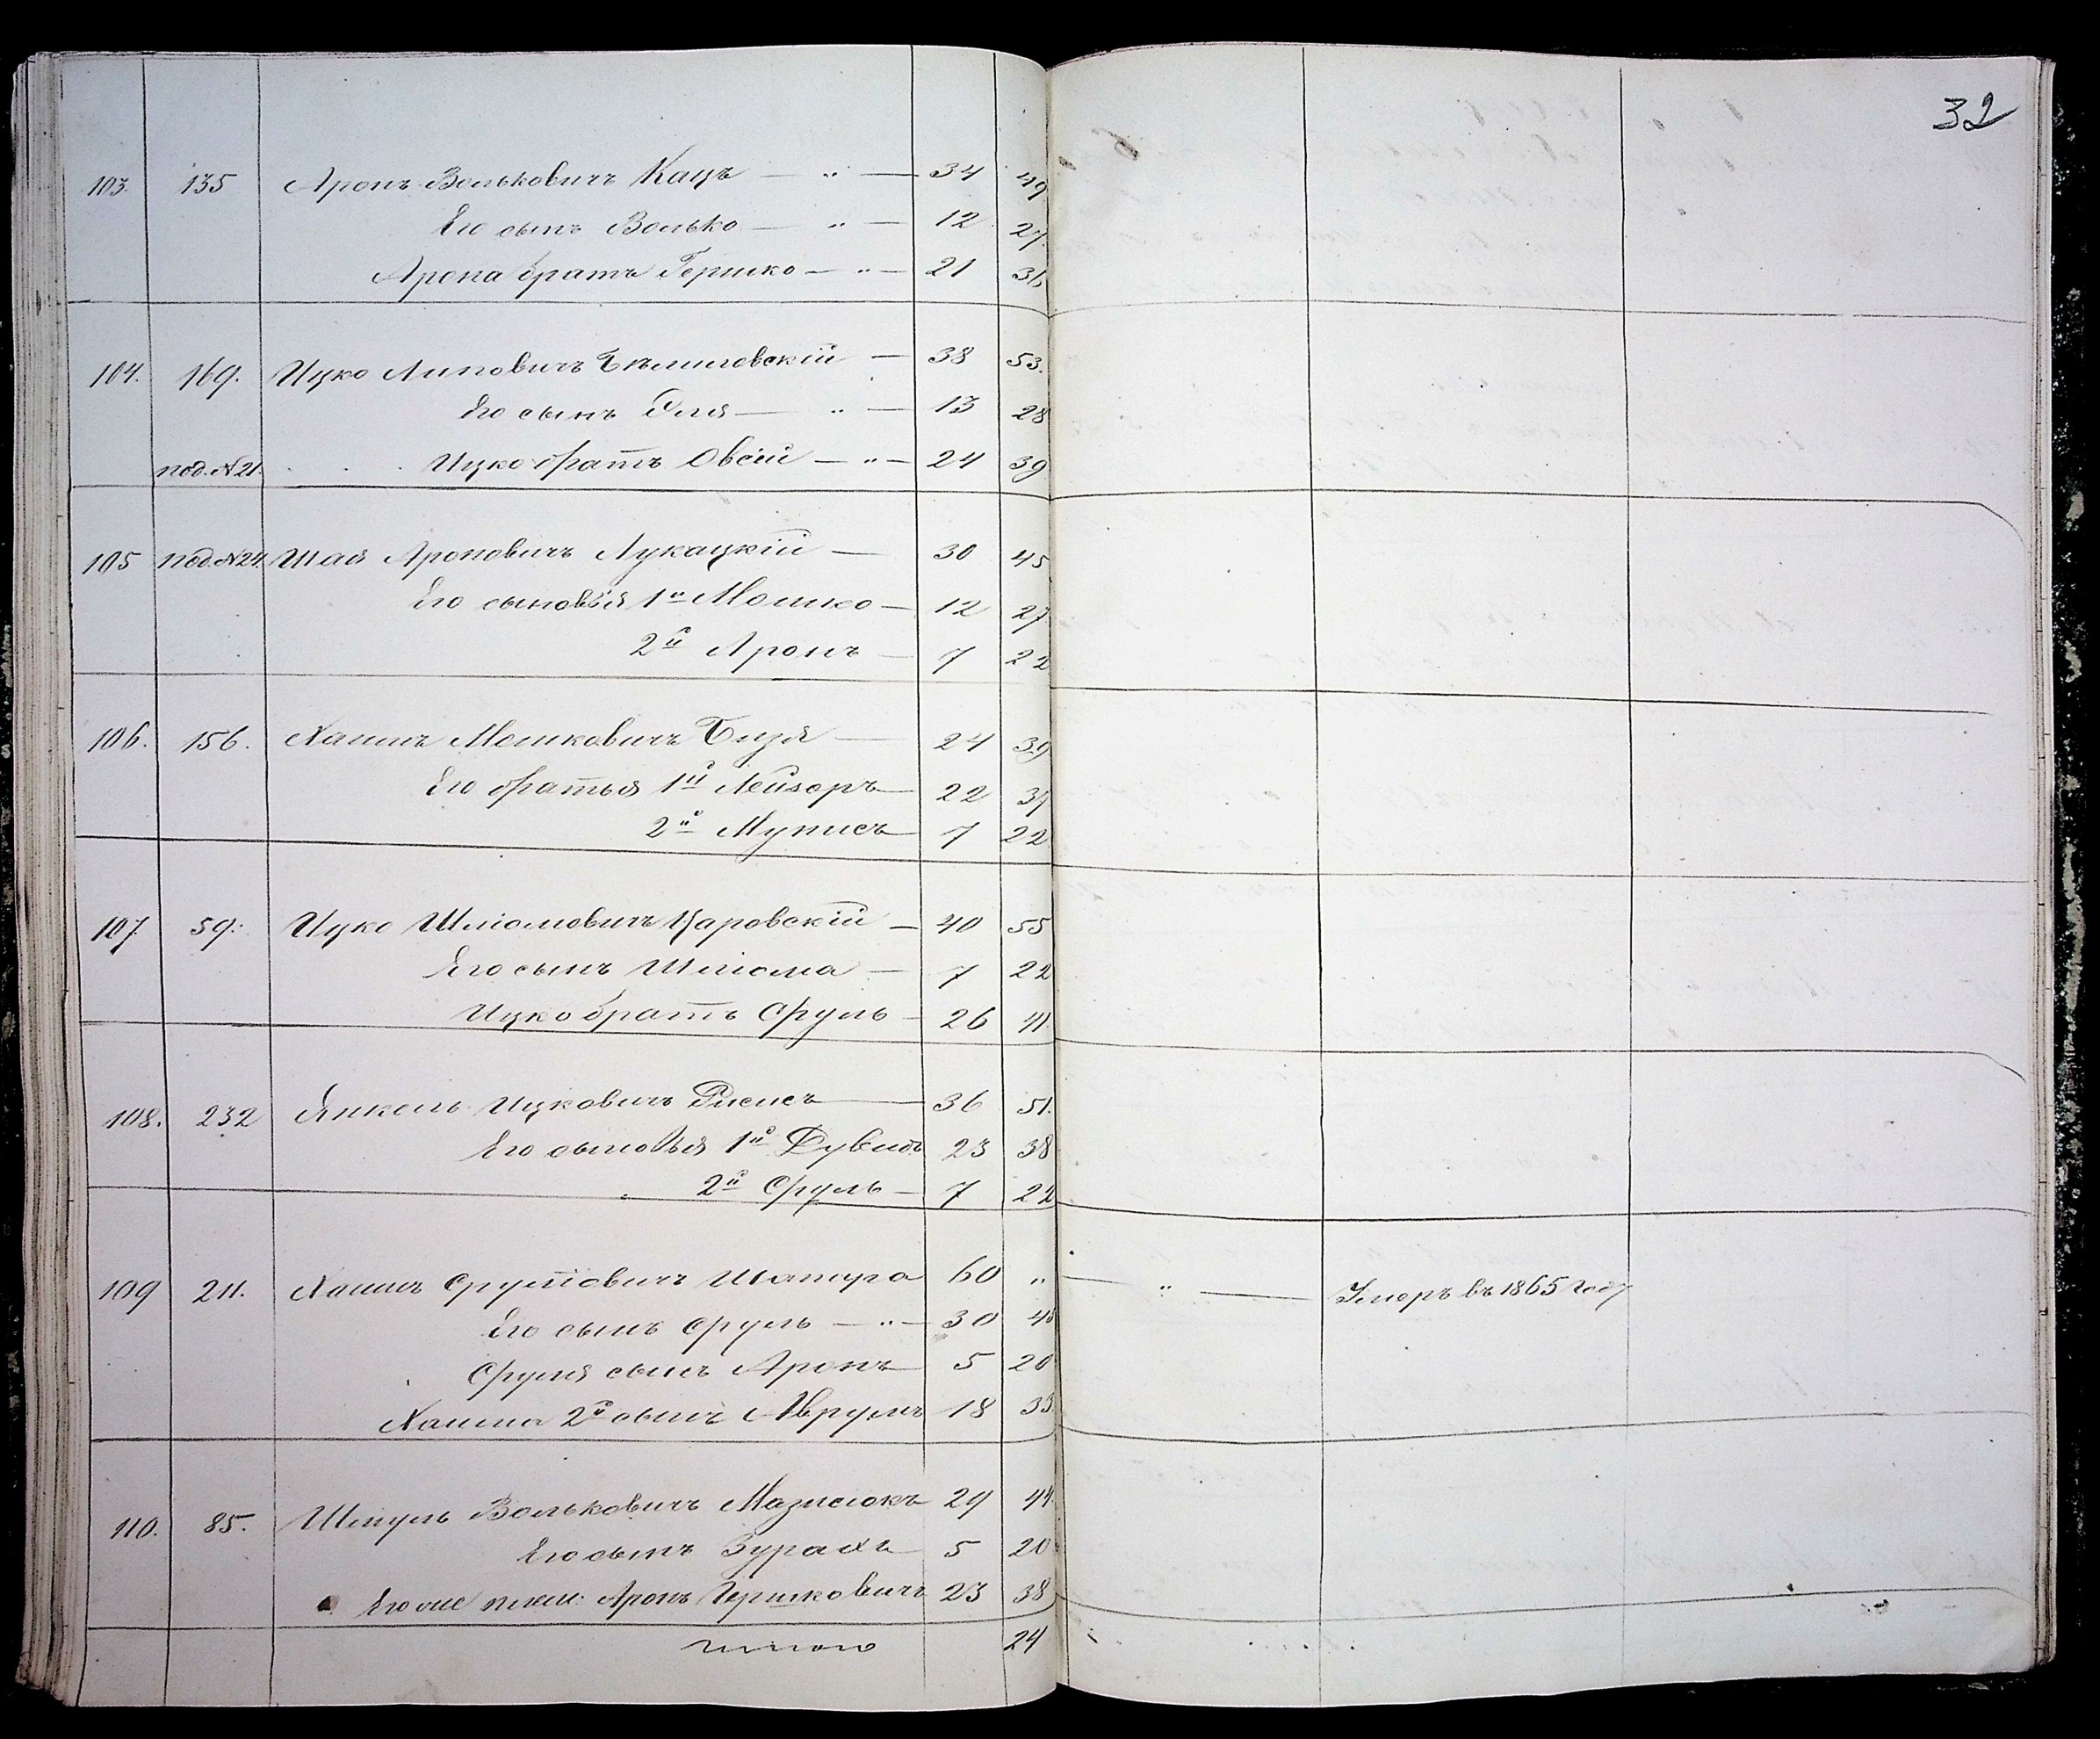 32
103. 135 Аронъ Вольковичъ Кацъ — " — 34 49
Его сынъ Волько — " — 12 27
Арона братъ Гершко — " — 21 36
104. 169. Ицко Липовичъ Бѣлиловскій — 38 53.
Его сынъ Еля — " — 13 28
под. №21. Ицко братъ Овсій — " — 24 39
105 под. №24. Шая Ароновичъ Лукацкій — 30 45
Его сыновья 1й Мошко — 12 27
2й Аронъ — 7 22
106. 156. Хаимъ Мошковичъ Бизя — 24 39
Его братья 1й Лейзоръ — 22 37
2й Мунисъ — 7 22
107 59. Ицко Шліомовичъ Царовскій — 40 55
Его сынъ Шліома — 7 22
Ицко братъ Сруль — 26 41
108. 232 Янкель Ицковичъ — 36 51.
Его сыновья 1й Дувидъ 23 38
2й Сруль — 7 22
109 211. Хаимъ Срулiовичъ Шапиро 60 " — " — Умеръ въ 1865 году
Его сынъ Сруль — " — 30 45
Сруля сынъ Аронъ 5 20
Хаима 2й сынъ Аврумъ 18 33.
110. 85. Шмуль Вольковичъ 29 44.
Его сынъ Зурахъ 5 20
Его же плем: Аронъ Гершковичъ 23 38
Итого 24